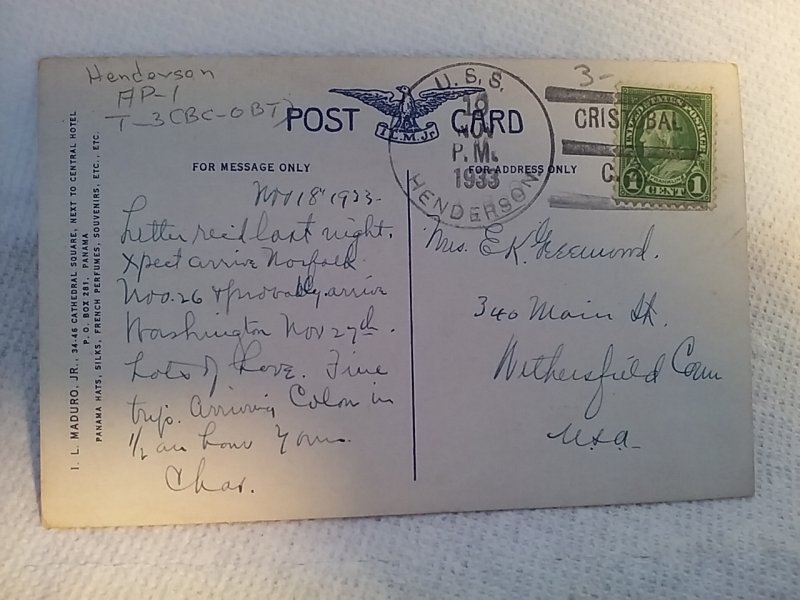 Henderson
AP-1
T-3(BC-OBT)
POST CARD
I.L.M.Jr.
FOR MESSAGE ONLY
FOR ADDRESS ONLY
U.S.S. HENDERSON
18
NOV
P.M.
1933
3-
CRISTOBAL
C.
UNITED STATES POSTAGE
1 CENT 1
Nov 18th 1933-
Letter rec'd last night.
Xpect arrive Norfolk
Nov. 26 & probably arrive
Washington Nov 27th.
Lots of Love. Fine
trip. Arriving Colon in
1/2 an hour Yours
Chas.
Mrs. E.K.
340 Main St.
Wethersfield Conn
U.S.A-
I. L. MADURO, JR., 34-46 CATHEDRAL SQUARE, NEXT TO CENTRAL HOTEL
P. O. BOX 281, PANAMA
PANAMA HATS, SILKS, FRENCH PERFUMES, SOUVENIRS, ETC., ETC.